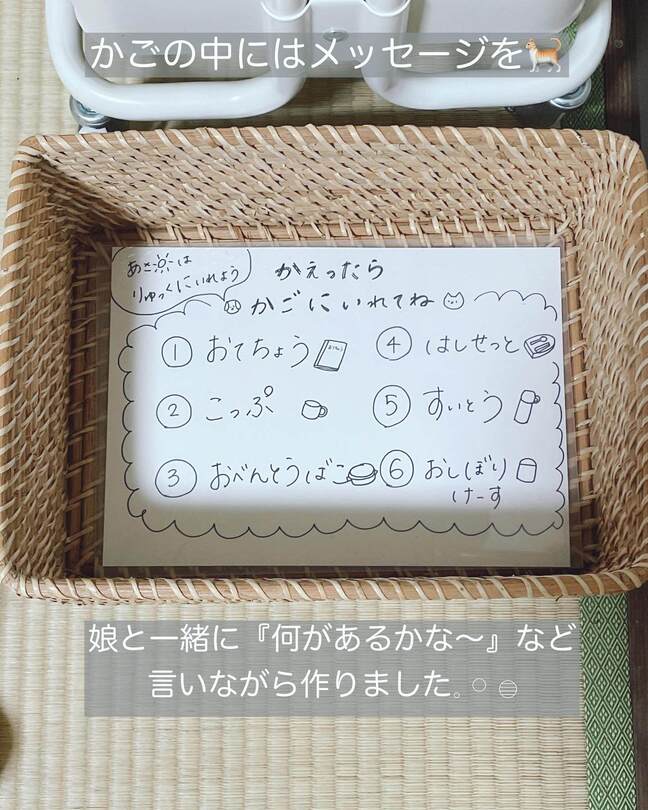 かごの中にはメッセージを🐈
あさは
りゅっくにいれよう
かえったら
かごにいれてね
① おてちょう
② こっぷ
③ おべんとうばこ
④ はしせっと
⑤ すいとう
⑥ おしぼり
けーす
娘と一緒に『何があるかな〜』など
言いながら作りました。